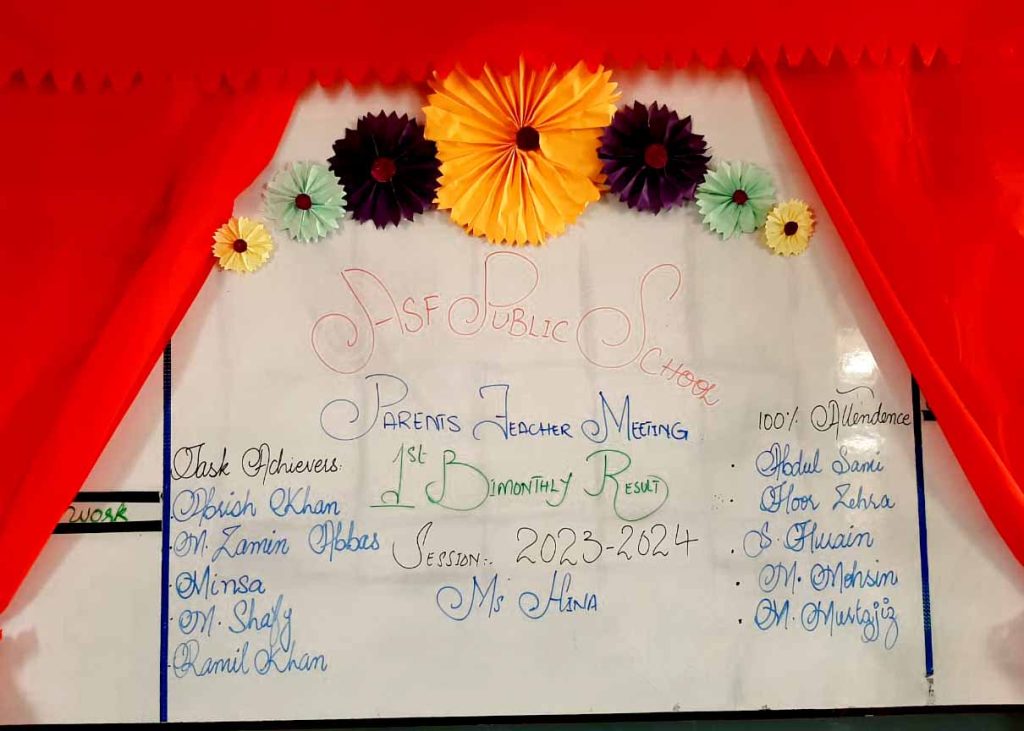 ASF PUBLIC SCHOOL
PARENTS TEACHER MEETING
1st BIMONTHLY RESULT
SESSION:. 2023-2024
Ms HINA
Task Achievers:
Abish Khan
M. Zamin Abbas
Minsa
M. Shafy
Ramil Khan
100% Attendence
Abdul Sami
Hoor Zehra
S. Husain
M. Mohsin
M. Mustajiz
work